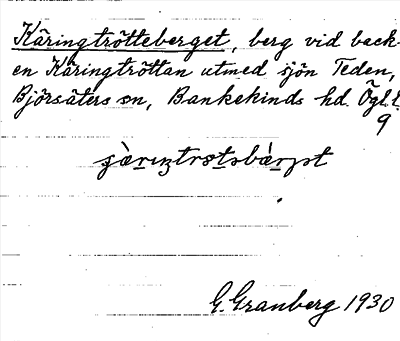 Käringtrötteberget, berg vid back-
en Käringtröttan utmed sjön Teden,
Björsäters sn, Bankekinds hd. Ögl. l.
9
G. Granberg 1930